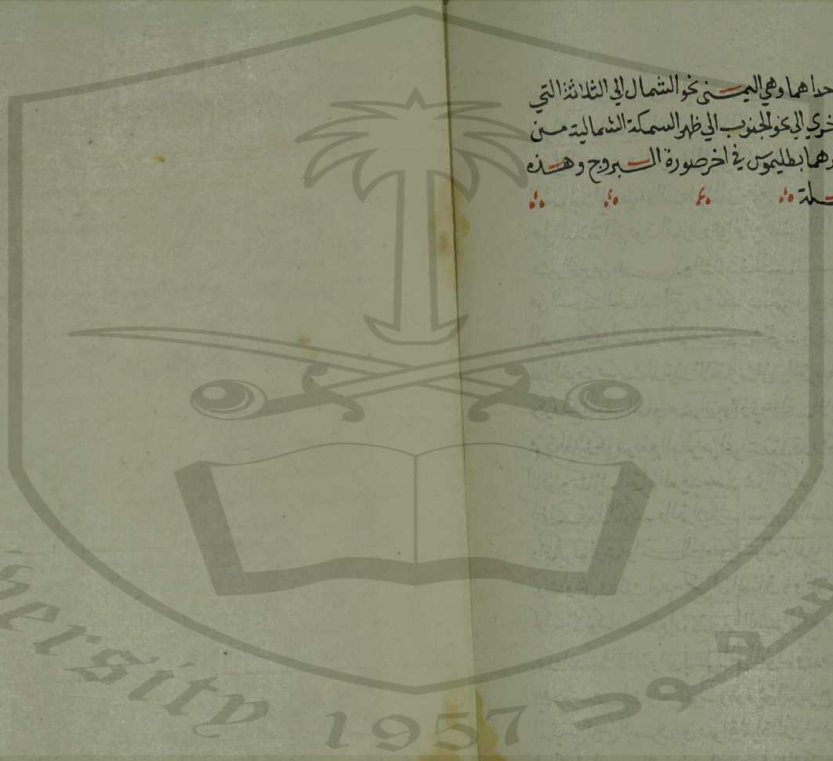 حداهما وهي اليمنى نحو الشمال الي الثلاثة التي
خري الي نحو الجنوب الي ظهر السمكة الشمالية من
وهما بطليموس في اخر صورة البروج وهذه
versity 1957 سعود